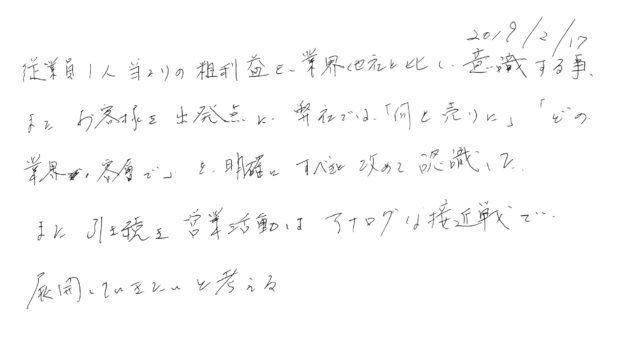 2019/2/17
従業員1人当りの粗利益を、業界他社と比し、意識する事、
また お客様を出発点に、弊社では、「何を売りに」「どの
業界・客層で」を、明確にすべきと改めて認識した。
また引き続き営業活動は アナログな接近戦で…
展開していきたいと考える